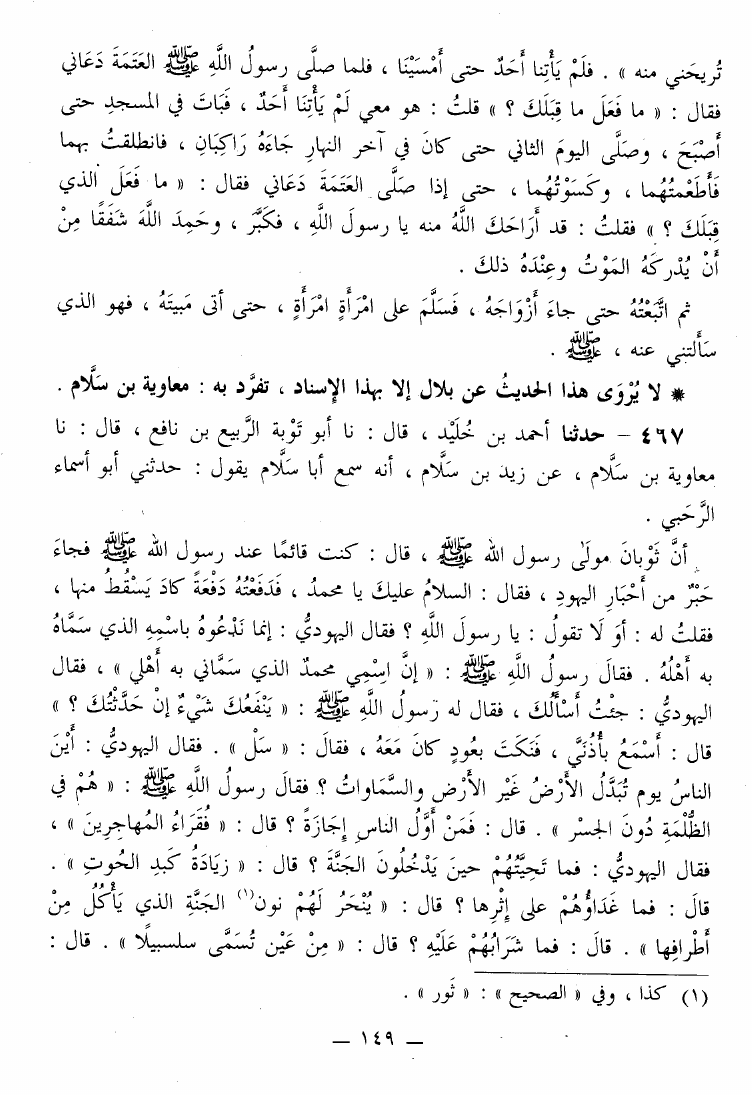 تُريحَني منه » . فلَمْ يَأْتِنا أَحَدٌ حتى أَمْسَيْنَا ، فلما صلَّى رسولُ اللَّهِ ﷺ العَتَمَةَ دَعَاني
فقال : « ما فَعَلَ ما قِبَلَكَ ؟ » قلتُ : هو معي لَمْ يَأْتِنَا أَحَدٌ ، فَبَاتَ في المسجدِ حتى
أَصْبَحَ ، وصَلَّى اليومَ الثاني حتى كانَ في آخر النهارِ جَاءَهُ رَاكِبَانِ ، فانطلقتُ بهما
فَأَطْعَمْتُهُما ، وكَسَوْتُهُما ، حتى إذا صَلَّى العَتَمَةَ دَعَاني فقال : « ما فَعَلَ الذي
قِبَلَكَ ؟ » فقلتُ : قد أَرَاحَكَ اللَّهُ منه يا رسولَ اللَّهِ ، فكَبَّرَ ، وحَمِدَ اللَّهَ شَفَقًا مِنْ
أَنْ يُدْركَهُ المَوْتُ وعِنْدَهُ ذلكَ .
ثم اتَّبَعْتُهُ حتى جاءَ أَزْوَاجَهُ ، فَسَلَّمَ على امْرَأَةٍ امْرَأَةٍ ، حتى أتى مَبيتَهُ ، فهو الذي
سَأَلتني عنه ، ﷺ .
* لا يُرْوَى هذا الحديثُ عن بلال إلا بهذا الإسناد ، تفرَّد به : معاوية بن سَلَّام .
٤٦٧ – حدثنا أحمد بن خُلَيْد ، قال : نا أبو تَوْبة الرَّبيع بن نافع ، قال : نا
معاوية بن سَلَّام ، عن زيد بن سَلَّام ، أنه سمع أبا سَلَّام يقول : حدثني أبو أسماء
الرَّحَبي .
أنَّ ثَوْبانَ مولَى رسول الله ﷺ ، قال : كنت قائمًا عند رسول الله ﷺ فجاءَ
حَبْرٌ من أَحْبَارِ اليهودِ ، فقال : السلامُ عليكَ يا محمدُ ، فَدَفَعْتُهُ دَفْعَةً كادَ يَسْقُطُ منها ،
فقلتُ له : أوَ لَا تقولُ : يا رسولَ اللَّهِ ؟ فقال اليهوديُّ : إنما نَدْعُوهُ باسْمِهِ الذي سَمَّاهُ
به أَهْلُهُ . فقالَ رسولُ اللَّهِ ﷺ : « إنَّ اسْمِي محمدٌ الذي سَمَّاني به أَهْلي » ، فقال
اليهوديُّ : جئْتُ أَسْأَلُكَ ، فقال له رسولُ اللَّهِ ﷺ : « يَنْفَعُكَ شَيْءٌ إنْ حَدَّثْتُكَ ؟ »
قال : أَسْمَعُ بأُذُنَيَّ ، فَنَكَتَ بعُودٍ كانَ مَعَهُ ، فقالَ : « سَلْ » . فقال اليهوديُّ : أَيْنَ
الناسُ يوم تُبَدَّلُ الأَرْضُ غَيْرَ الأَرْضِ والسَّمَاواتُ ؟ فقالَ رسولُ اللَّهِ ﷺ : « هُمْ في
الظُّلْمَةِ دُونَ الجسْرِ » . قال : فَمَنْ أَوَّلُ الناسِ إجَازَةً ؟ قال : « فُقَرَاءُ المُهاجِرِينَ » ،
فقال اليهوديُّ : فما تَحِيَّتُهُمْ حينَ يَدْخُلُونَ الجَنَّةَ ؟ قال : « زيَادَةُ كَبدِ الحُوتِ » .
قالَ : فما غَدَاؤُهُمْ على إثْرِها ؟ قال : « يُنْحَرُ لَهُمْ نون(١) الجَنَّةِ الذي يَأْكُلُ مِنْ
أَطْرافِها » . قالَ : فما شَرَابُهُمْ عَلَيْهِ ؟ قال : « مِنْ عَيْن تُسَمَّى سلسبيلًا » . قال :
(١) كذا ، وفي « الصحيح » : « ثَور » .
— ١٤٩ —